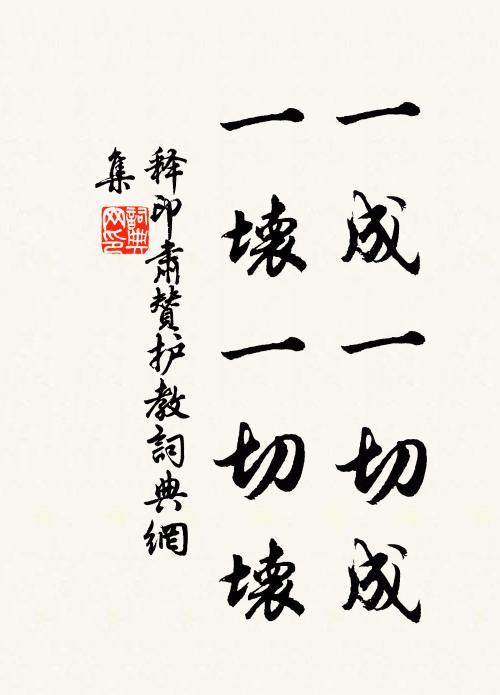 一成一切成
一壞一切壞
释印肃贊护教詞典網
集
詞典
网印